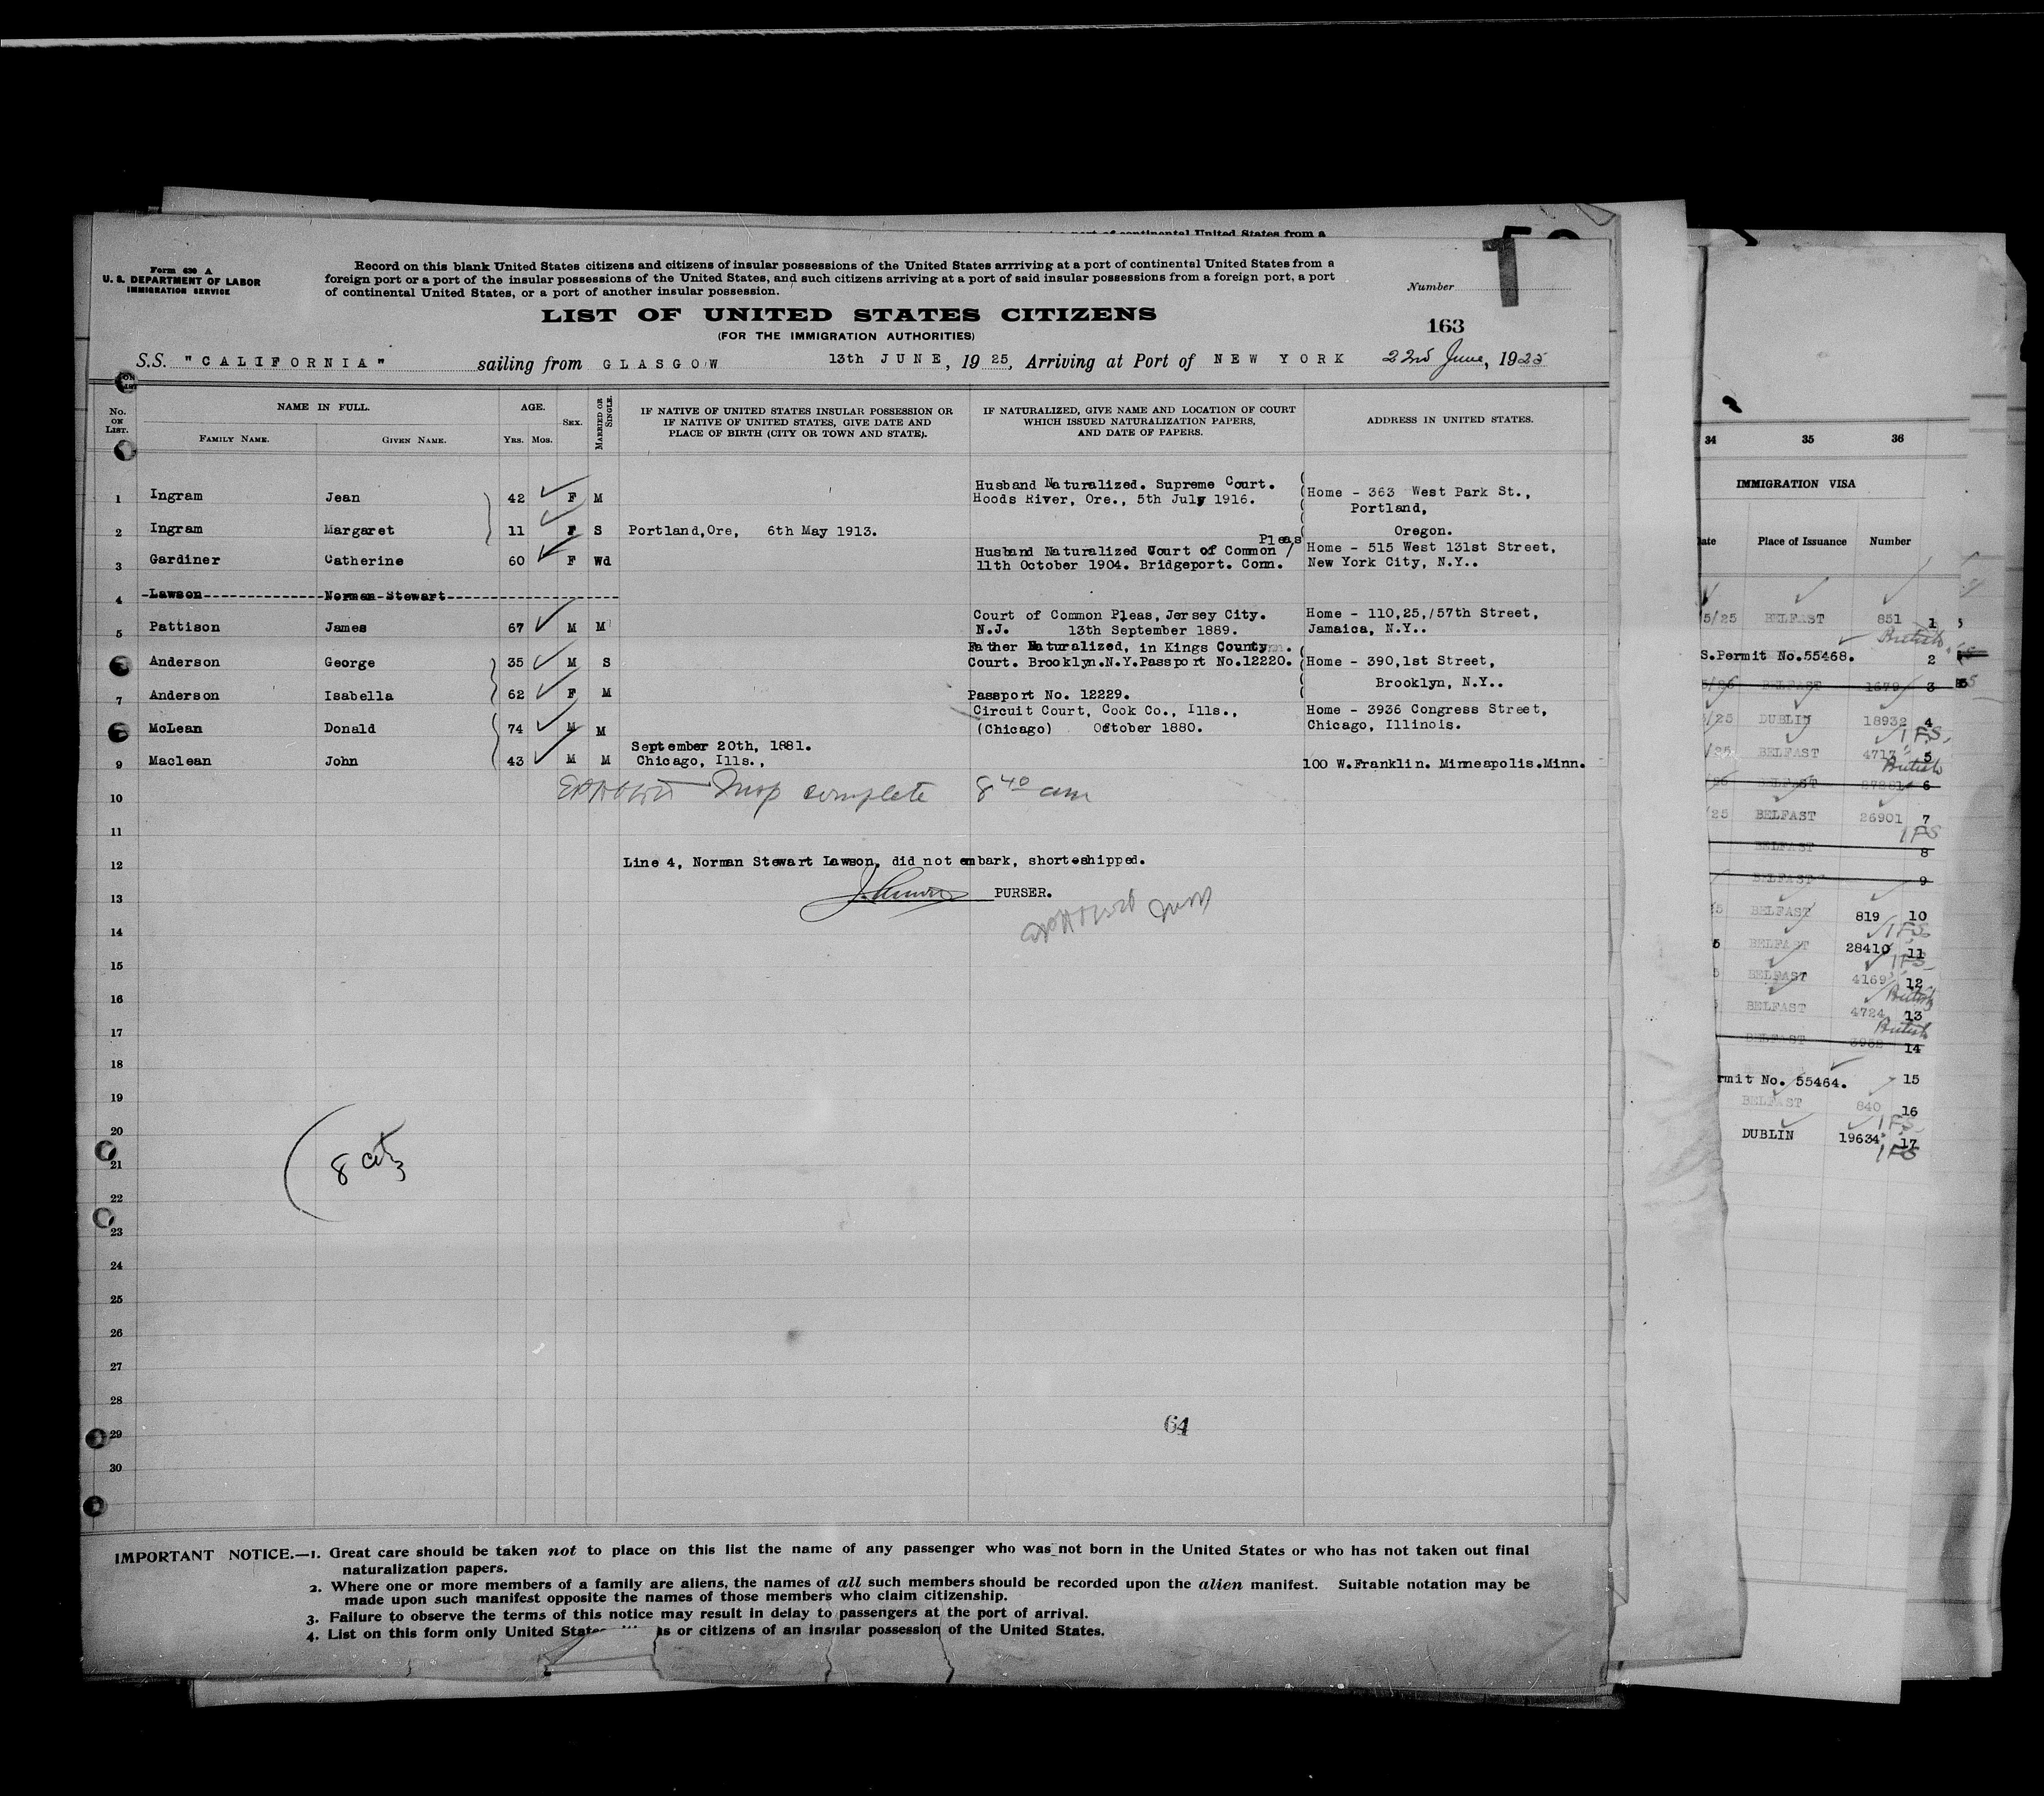 of continental United States from a
Form 630 A
U. S. DEPARTMENT OF LABOR
IMMIGRATION SERVICE
Record on this blank United States citizens and citizens of insular possessions of the United States arrriving at a port of continental United States from a
foreign port or a port of the insular possessions of the United States, and such citizens arriving at a port of said insular possessions from a foreign port, a port
of continental United States, or a port of another insular possession.
Number 1
LIST OF UNITED STATES CITIZENS
(FOR THE IMMIGRATION AUTHORITIES)
163
S.S. "CALIFORNIA" sailing from GLASGOW 13th JUNE, 1925, Arriving at Port of NEW YORK 22nd June, 1925
No. ON LIST.
NAME IN FULL.
FAMILY NAME. GIVEN NAME.
AGE.
Yrs. Mos.
SEX.
MARRIED OR SINGLE.
IF NATIVE OF UNITED STATES INSULAR POSSESSION OR
IF NATIVE OF UNITED STATES, GIVE DATE AND
PLACE OF BIRTH (CITY OR TOWN AND STATE).
IF NATURALIZED, GIVE NAME AND LOCATION OF COURT
WHICH ISSUED NATURALIZATION PAPERS,
AND DATE OF PAPERS.
ADDRESS IN UNITED STATES.
1 Ingram Jean 42 F M
Husband Naturalized. Supreme Court.
Hoods River, Ore., 5th July 1916.
Home - 363 West Park St.,
Portland,
Oregon.
2 Ingram Margaret 11 F S Portland,Ore, 6th May 1913.
3 Gardiner Catherine 60 F Wd
Husband Naturalized Court of Common / Pleas
11th October 1904. Bridgeport. Conn.
Home - 515 West 131st Street,
New York City, N.Y..
4 -Lawson------------Norman-Stewart-----------------
5 Pattison James 67 M M
Court of Common Pleas, Jersey City.
N.J. 13th September 1889.
Home - 110,25,/57th Street,
Jamaica, N.Y..
Anderson George 35 M S
Father Naturalized, in Kings County
Court. Brooklyn.N.Y.Passport No.12220.
Home - 390,1st Street,
Brooklyn, N.Y..
7 Anderson Isabella 62 F M
Passport No. 12229.
McLean Donald 74 M M
Circuit Court, Cook Co., Ills.,
(Chicago) October 1880.
Home - 3936 Congress Street,
Chicago, Illinois.
9 Maclean John 43 M M
September 20th, 1881.
Chicago, Ills.,
100 W.Franklin. Minneapolis.Minn.
10 Insp complete 8 40 am
11
12 Line 4, Norman Stewart Lawson, did not embark, short-shipped.
13 PURSER.
14
15
16
17
18
19
20
21
8 citz
22
23
24
25
26
27
28
29
64
30
IMPORTANT NOTICE.—1. Great care should be taken not to place on this list the name of any passenger who was not born in the United States or who has not taken out final
naturalization papers.
2. Where one or more members of a family are aliens, the names of all such members should be recorded upon the alien manifest. Suitable notation may be
made upon such manifest opposite the names of those members who claim citizenship.
3. Failure to observe the terms of this notice may result in delay to passengers at the port of arrival.
4. List on this form only United States or citizens of an insular possession of the United States.
34 35 36
IMMIGRATION VISA
Place of Issuance Number
5/25 BELFAST 851 1
British
S.Permit No.55468. 2
BELFAST 1679 3
/25 DUBLIN 18932 4
IFS.
/25 BELFAST 4713 5
British
BELFAST 6
/25 BELFAST 26901 7
IFS
BELFAST 8
BELFAST 9
BELFAST 819 10
IFS
BELFAST 28410 11
IFS
BELFAST 4169 12
British
BELFAST 4724 13
British
BELFAST 14
rmit No. 55464. 15
BELFAST 840 16
IFS
DUBLIN 19634 17
IFS